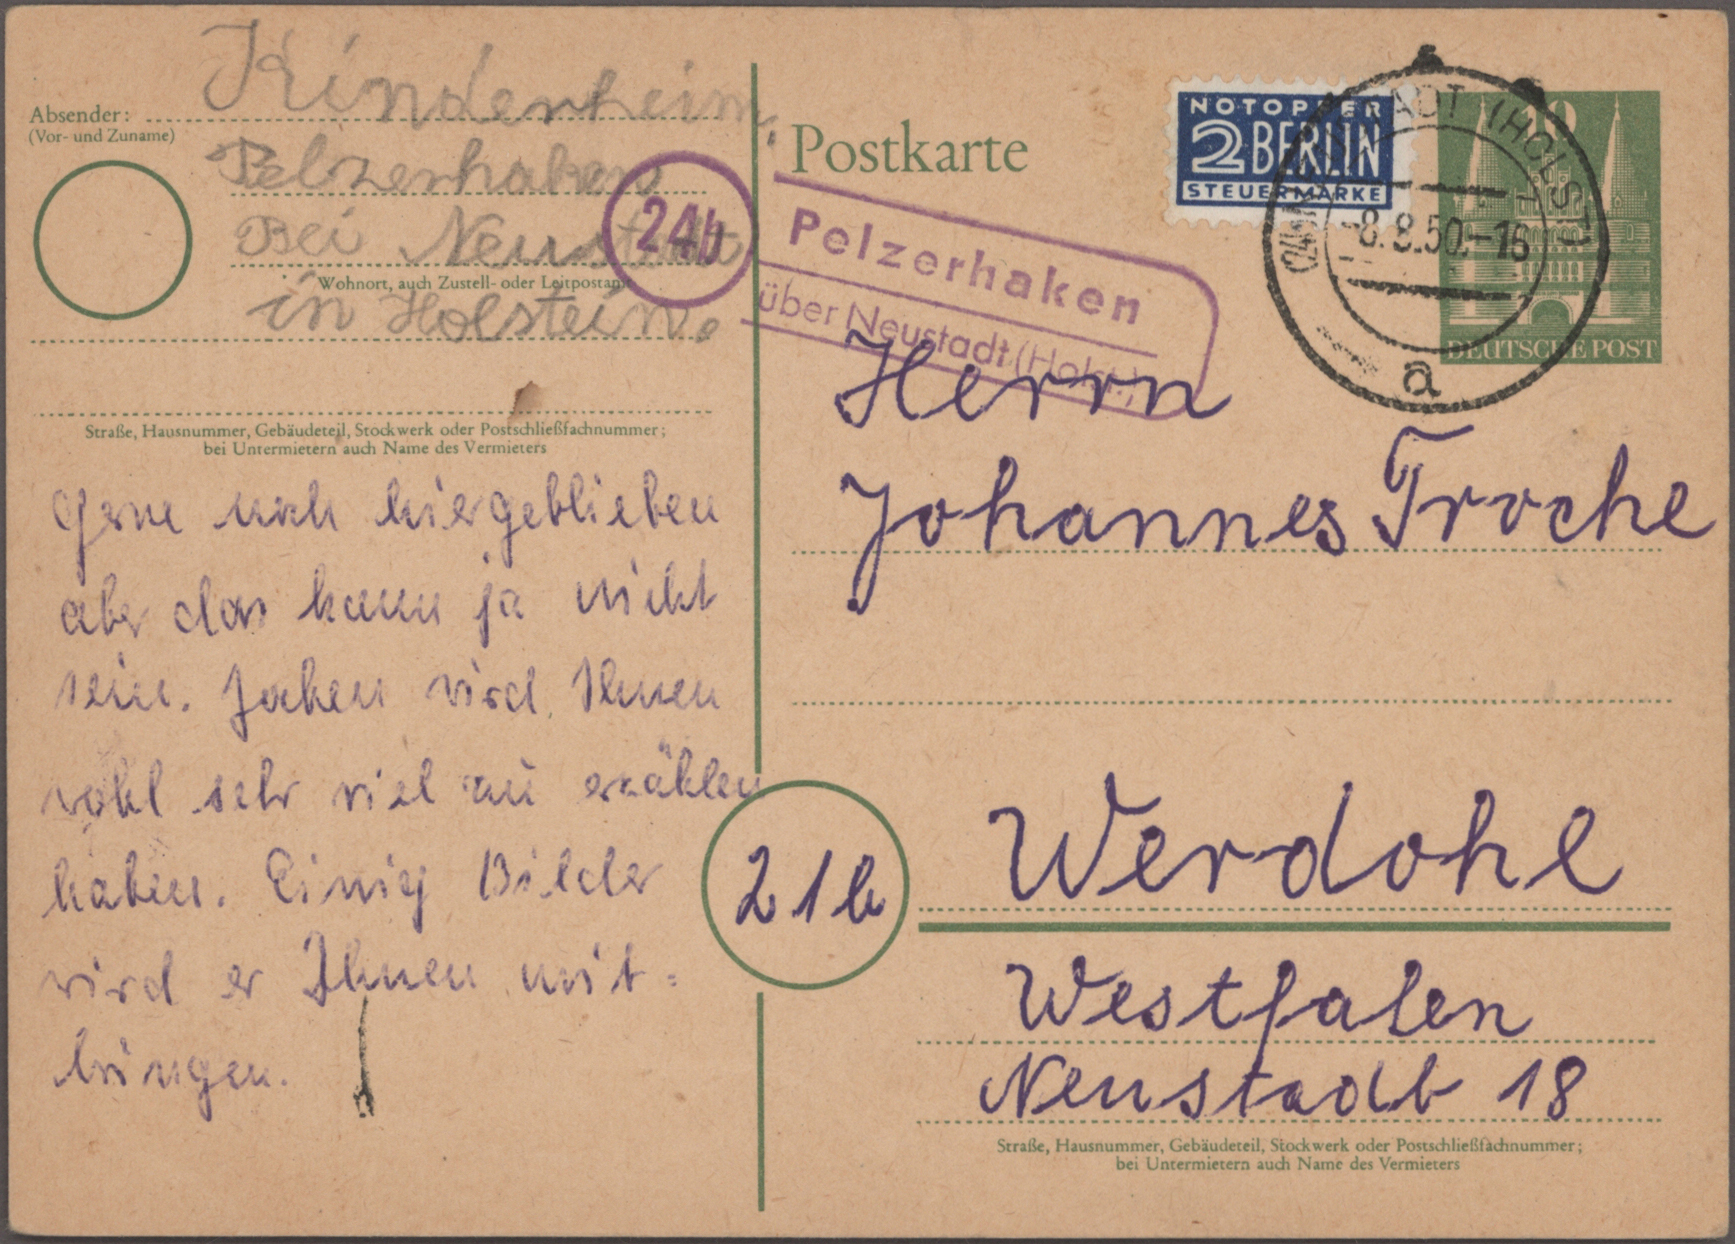 Absender:
(Vor- und Zuname)
Kinderheim,
Pelzerhaken
Bei Neustadt
Wohnort, auch Zustell- oder Leitpostamt
in Holstein.
Straße, Hausnummer, Gebäudeteil, Stockwerk oder Postschließfachnummer;
bei Untermietern auch Name des Vermieters
Gerne noch hiergeblieben
aber das kann ja nicht
sein. Jochen wird Ihnen
wohl sehr viel zu erzählen
haben. Einig Bilder
wird er Ihnen mit=
bringen.
24b
Pelzerhaken
über Neustadt (Holst.)
Postkarte
NOTOPFER
2 BERLIN
STEUERMARKE
(24b) NEUSTADT (HOLST)
-8.8.50.-16
a
10
DEUTSCHE POST
Herrn
Johannes Troche
21b
Werdohl
Westfalen
Neustadt 18
Straße, Hausnummer, Gebäudeteil, Stockwerk oder Postschließfachnummer;
bei Untermietern auch Name des Vermieters